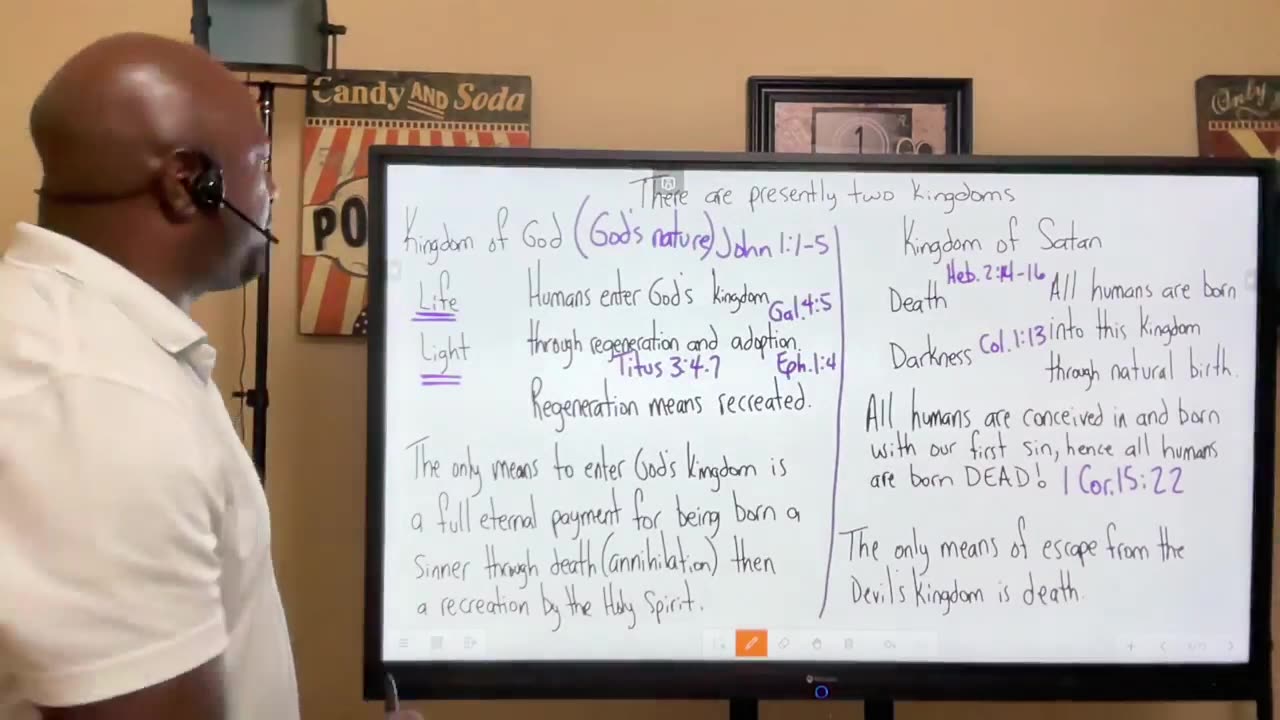 Candy AND Soda
PO
1
Only
There are presently two Kingdoms
Kingdom of God (God's nature) John 1:1-5
Life
Light
Humans enter God's kingdom
Gal. 4:5
through regeneration and adoption.
Titus 3:4-7
Eph. 1:4
Regeneration means recreated.
The only means to enter God's Kingdom is
a full eternal payment for being born a
sinner through death (annihilation) then
a recreation by the Holy Spirit.
Kingdom of Satan
Heb. 2:14-16
Death
Darkness
Col. 1:13
All humans are born
into this Kingdom
through natural birth.
All humans are conceived in and born
with our first sin, hence all humans
are born DEAD! 1 Cor. 15:22
The only means of escape from the
Devil's Kingdom is death.